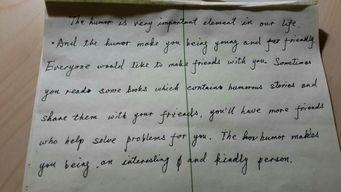 The humor is very important element in our life.
And the humor make you being young and friendly
Everyone would like to make friends with you. Sometimes
you reads some books which contains humorous stories and
share them with your friends, you'll have more friends
who help solve problems for you. The humor makes
you being an interesting and kindly person.